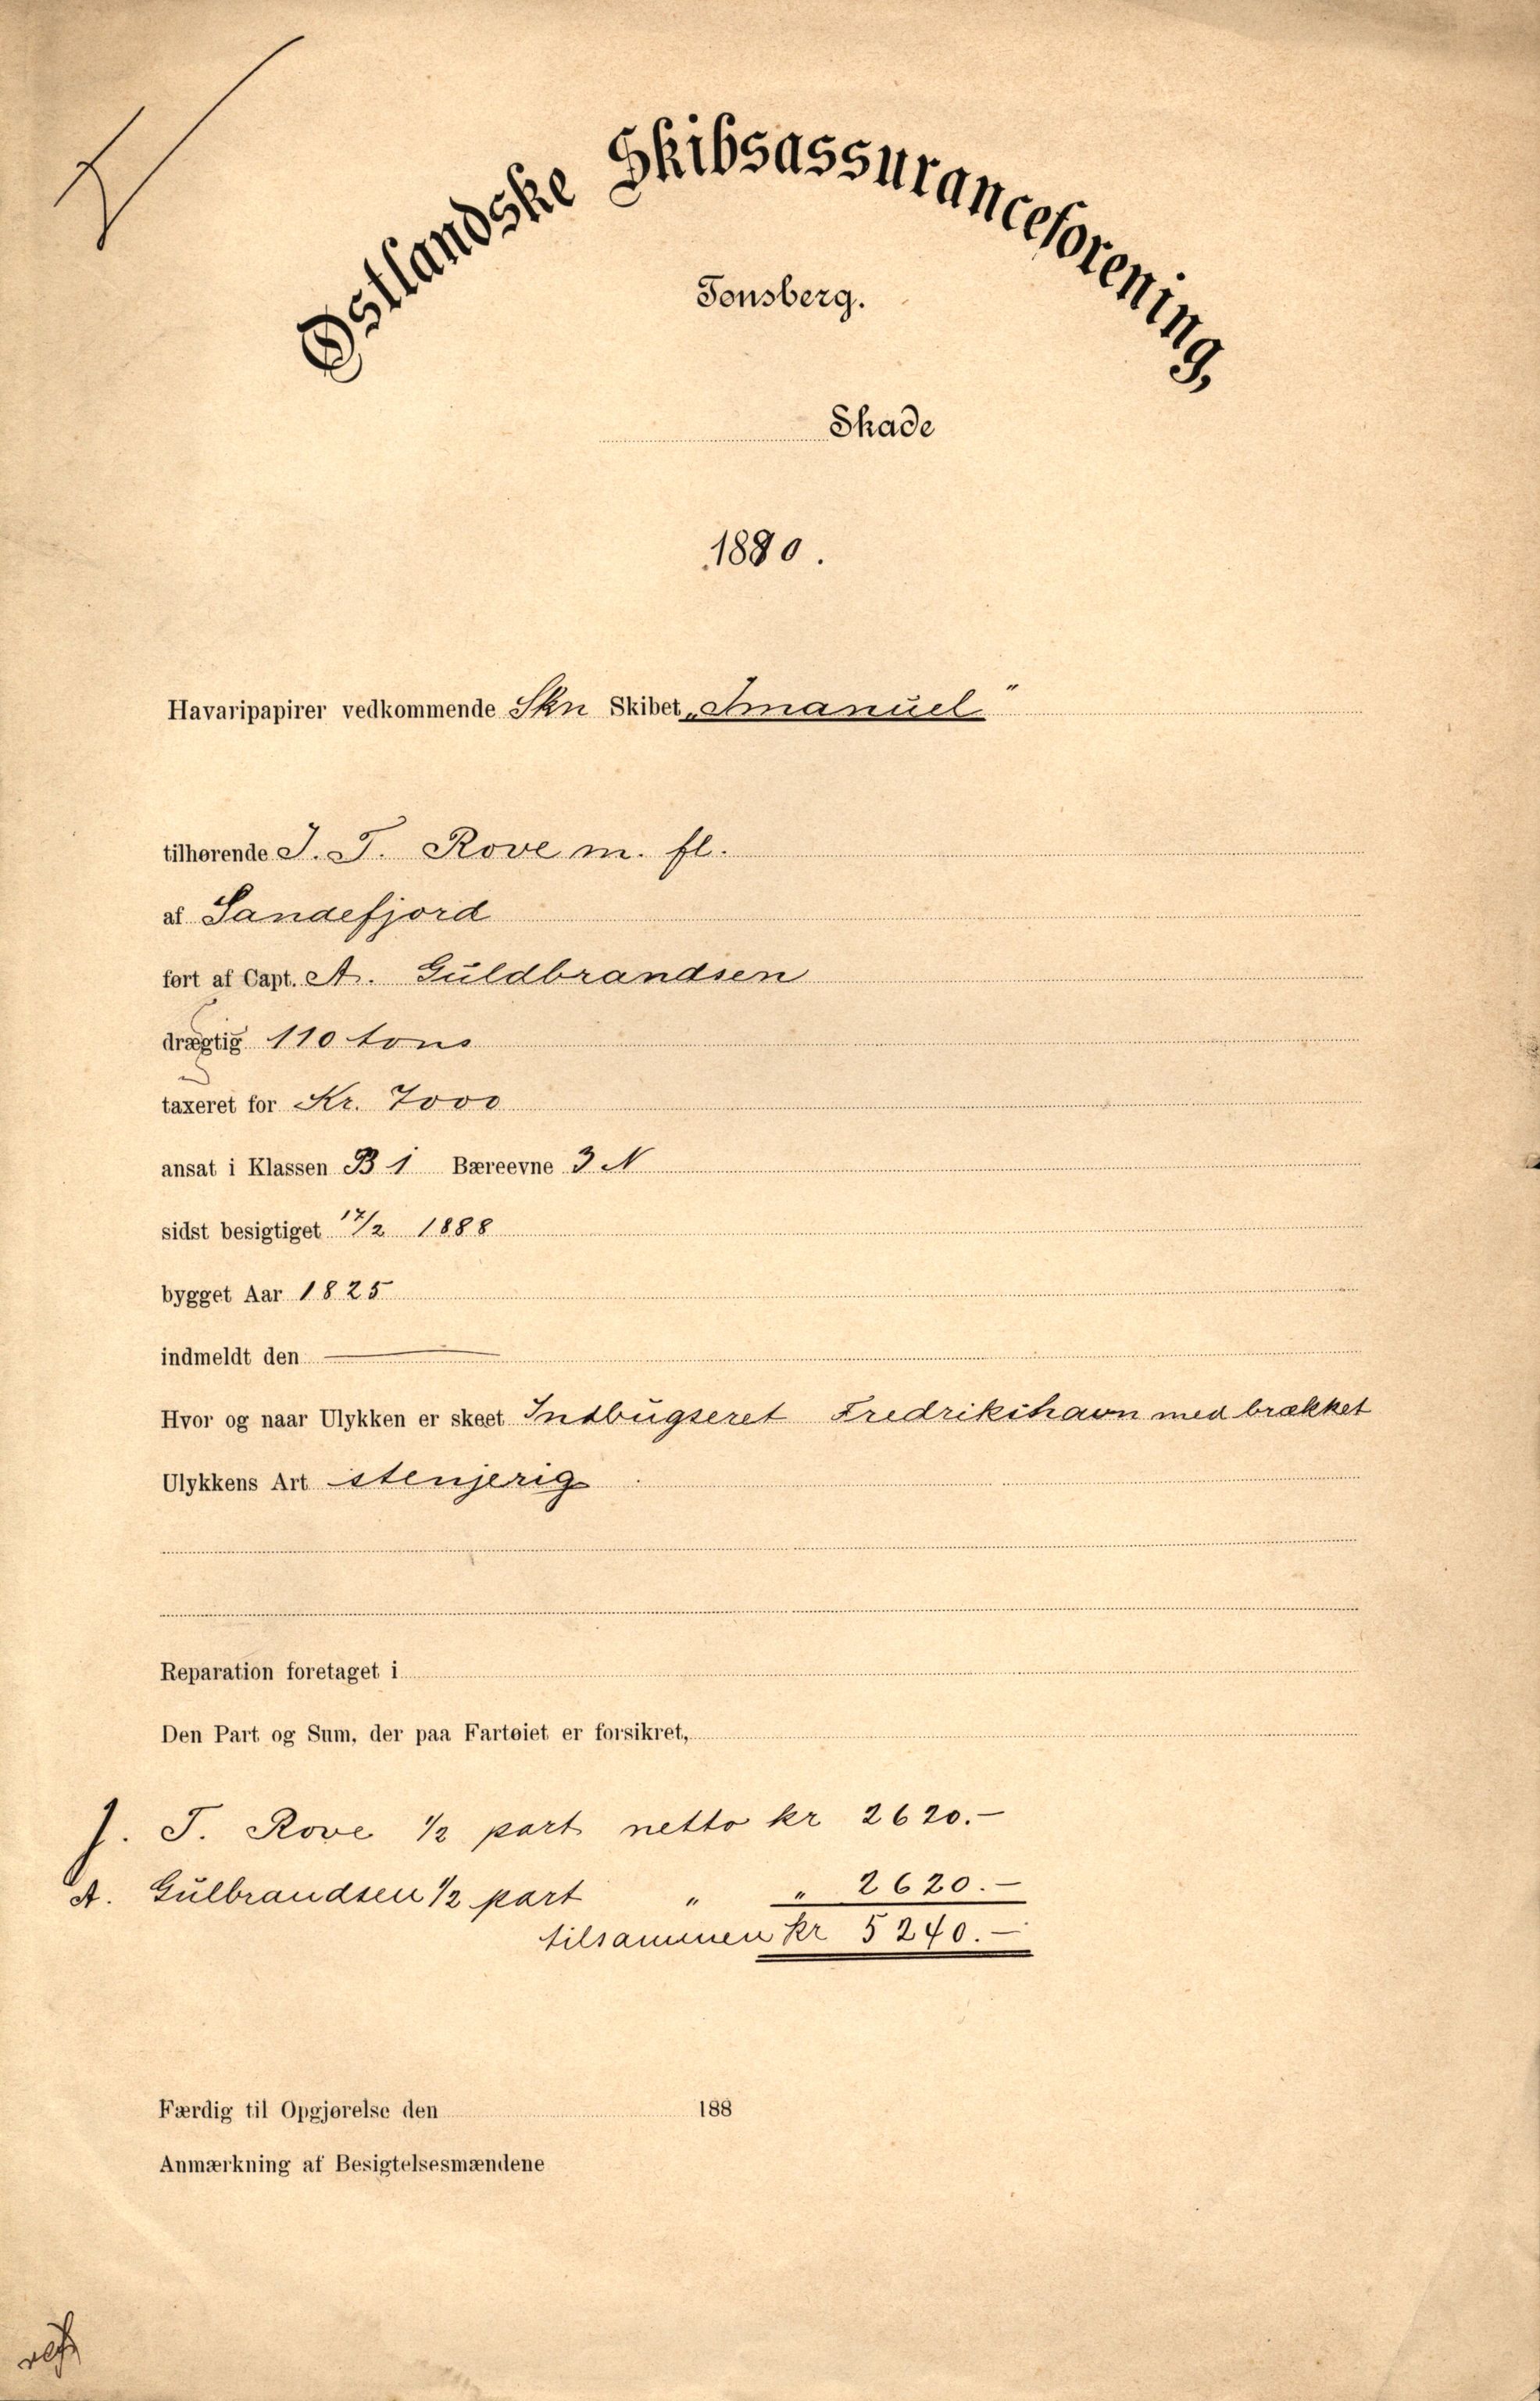 Østlandske Skibsassuranceforening,
Tønsberg.
Skade
1890.
Havaripapirer vedkommende Skn Skibet „Imanuel"
tilhørende J. T. Rove m. fl.
af Sandefjord
ført af Capt. A. Guldbrandsen
drægtig 110 tons
taxeret for Kr. 7000
ansat i Klassen B 1 Bæreevne 3 N
sidst besigtiget 17/2 1888
bygget Aar 1825
indmeldt den —
Hvor og naar Ulykken er skeet Indbugseret Fredrikshavn med brækket
Ulykkens Art stenjerig
Reparation foretaget i
Den Part og Sum, der paa Fartøiet er forsikret,
J. T. Rove 1/2 part netto kr 2620.—
A. Gulbrandsen 1/2 part " " 2620.—
tilsammen kr 5240.—
Færdig til Opgjørelse den 188
Anmærkning af Besigtelsesmændene